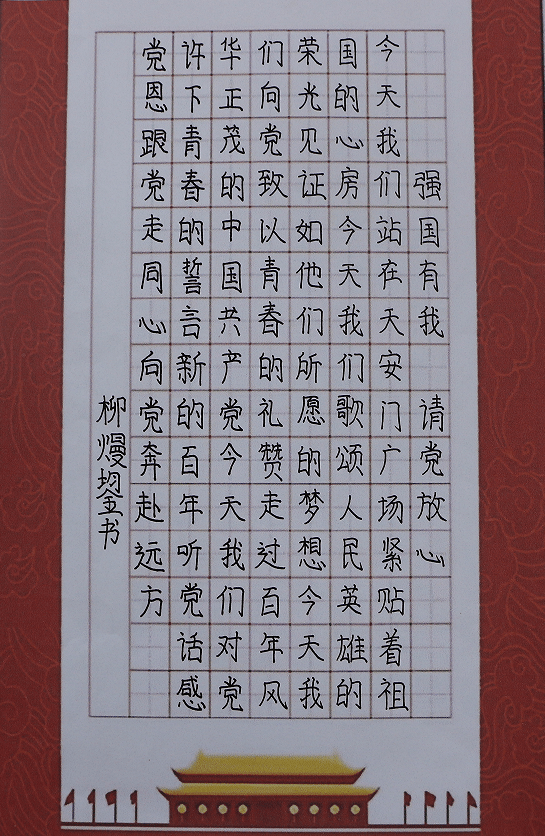 强国有我 请党放心
今天我们站在天安门广场紧贴着祖
国的心房今天我们歌颂人民英雄的
荣光见证如他们所愿的梦想今天我
们向党致以青春的礼赞走过百年风
华正茂的中国共产党今天我们对党
许下青春的誓言新的百年听党话感
党恩跟党走同心向党奔赴远方
柳熳鋆书